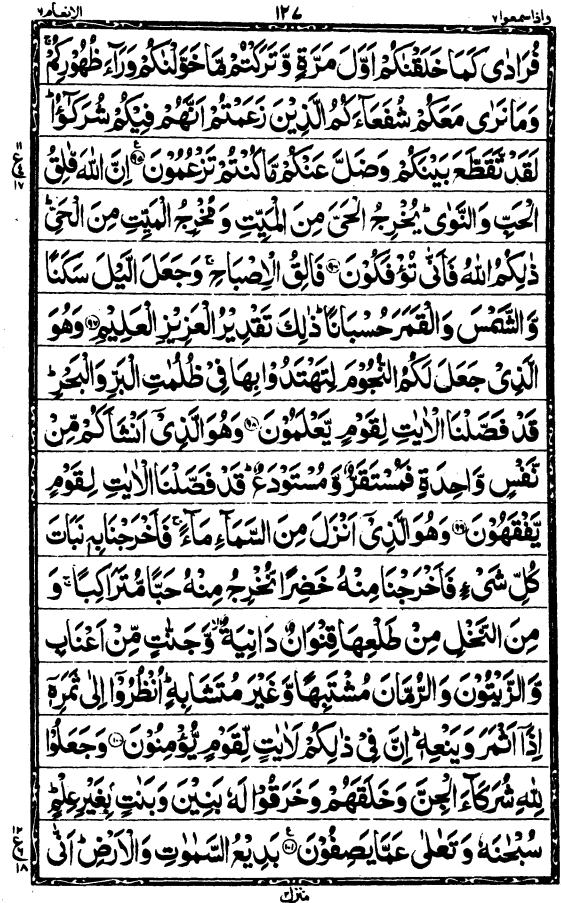 الانعام ٦ ١٢٧ واذا سمعوا ٧
فُرَادٰى كَمَا خَلَقْنٰكُمْ اَوَّلَ مَرَّةٍ وَّتَرَكْتُمْ مَّا خَوَّلْنٰكُمْ وَرَآءَ ظُهُوْرِكُمْ ۚ
وَمَا نَرٰى مَعَكُمْ شُفَعَآءَكُمُ الَّذِيْنَ زَعَمْتُمْ اَنَّهُمْ فِيْكُمْ شُرَكٰٓؤُا ؕ
لَقَدْ تَّقَطَّعَ بَيْنَكُمْ وَضَلَّ عَنْكُمْ مَّا كُنْتُمْ تَزْعُمُوْنَ ﴿٩٥﴾ اِنَّ اللّٰهَ فَلِقُ
الْحَبِّ وَالنَّوٰى ؕ يُخْرِجُ الْحَيَّ مِنَ الْمَيِّتِ وَمُخْرِجُ الْمَيِّتِ مِنَ الْحَيِّ ؕ
ذٰلِكُمُ اللّٰهُ فَاَنّٰى تُؤْفَكُوْنَ ﴿٩٦﴾ فَالِقُ الْاِصْبَاحِ ۚ وَجَعَلَ الَّيْلَ سَكَنًا
وَّالشَّمْسَ وَالْقَمَرَ حُسْبَانًا ؕ ذٰلِكَ تَقْدِيْرُ الْعَزِيْزِ الْعَلِيْمِ ﴿٩٧﴾ وَهُوَ
الَّذِيْ جَعَلَ لَكُمُ النُّجُوْمَ لِتَهْتَدُوْا بِهَا فِيْ ظُلُمٰتِ الْبَرِّ وَالْبَحْرِ ؕ
قَدْ فَصَّلْنَا الْاٰيٰتِ لِقَوْمٍ يَّعْلَمُوْنَ ﴿٩٨﴾ وَهُوَ الَّذِيْٓ اَنْشَاَكُمْ مِّنْ
نَّفْسٍ وَّاحِدَةٍ فَمُسْتَقَرٌّ وَّمُسْتَوْدَعٌ ؕ قَدْ فَصَّلْنَا الْاٰيٰتِ لِقَوْمٍ
يَّفْقَهُوْنَ ﴿٩٩﴾ وَهُوَ الَّذِيْٓ اَنْزَلَ مِنَ السَّمَآءِ مَآءً ۚ فَاَخْرَجْنَا بِهٖ نَبَاتَ
كُلِّ شَيْءٍ فَاَخْرَجْنَا مِنْهُ خَضِرًا نُّخْرِجُ مِنْهُ حَبًّا مُّتَرَاكِبًا ۚ وَ
مِنَ النَّخْلِ مِنْ طَلْعِهَا قِنْوَانٌ دَانِيَةٌ ۙ وَّجَنّٰتٍ مِّنْ اَعْنَابٍ
وَّالزَّيْتُوْنَ وَالرُّمَّانَ مُشْتَبِهًا وَّغَيْرَ مُتَشَابِهٍ ؕ اُنْظُرُوْٓا اِلٰى ثَمَرِهٖٓ
اِذَآ اَثْمَرَ وَيَنْعِهٖ ؕ اِنَّ فِيْ ذٰلِكُمْ لَاٰيٰتٍ لِّقَوْمٍ يُّؤْمِنُوْنَ ﴿١٠٠﴾ وَجَعَلُوْا
لِلّٰهِ شُرَكَآءَ الْجِنَّ وَخَلَقَهُمْ وَخَرَقُوْا لَهٗ بَنِيْنَ وَبَنٰتٍ بِغَيْرِ عِلْمٍ ؕ
سُبْحٰنَهٗ وَتَعٰلٰى عَمَّا يَصِفُوْنَ ﴿١٠١﴾ بَدِيْعُ السَّمٰوٰتِ وَالْاَرْضِ ؕ اَنّٰى
منزل